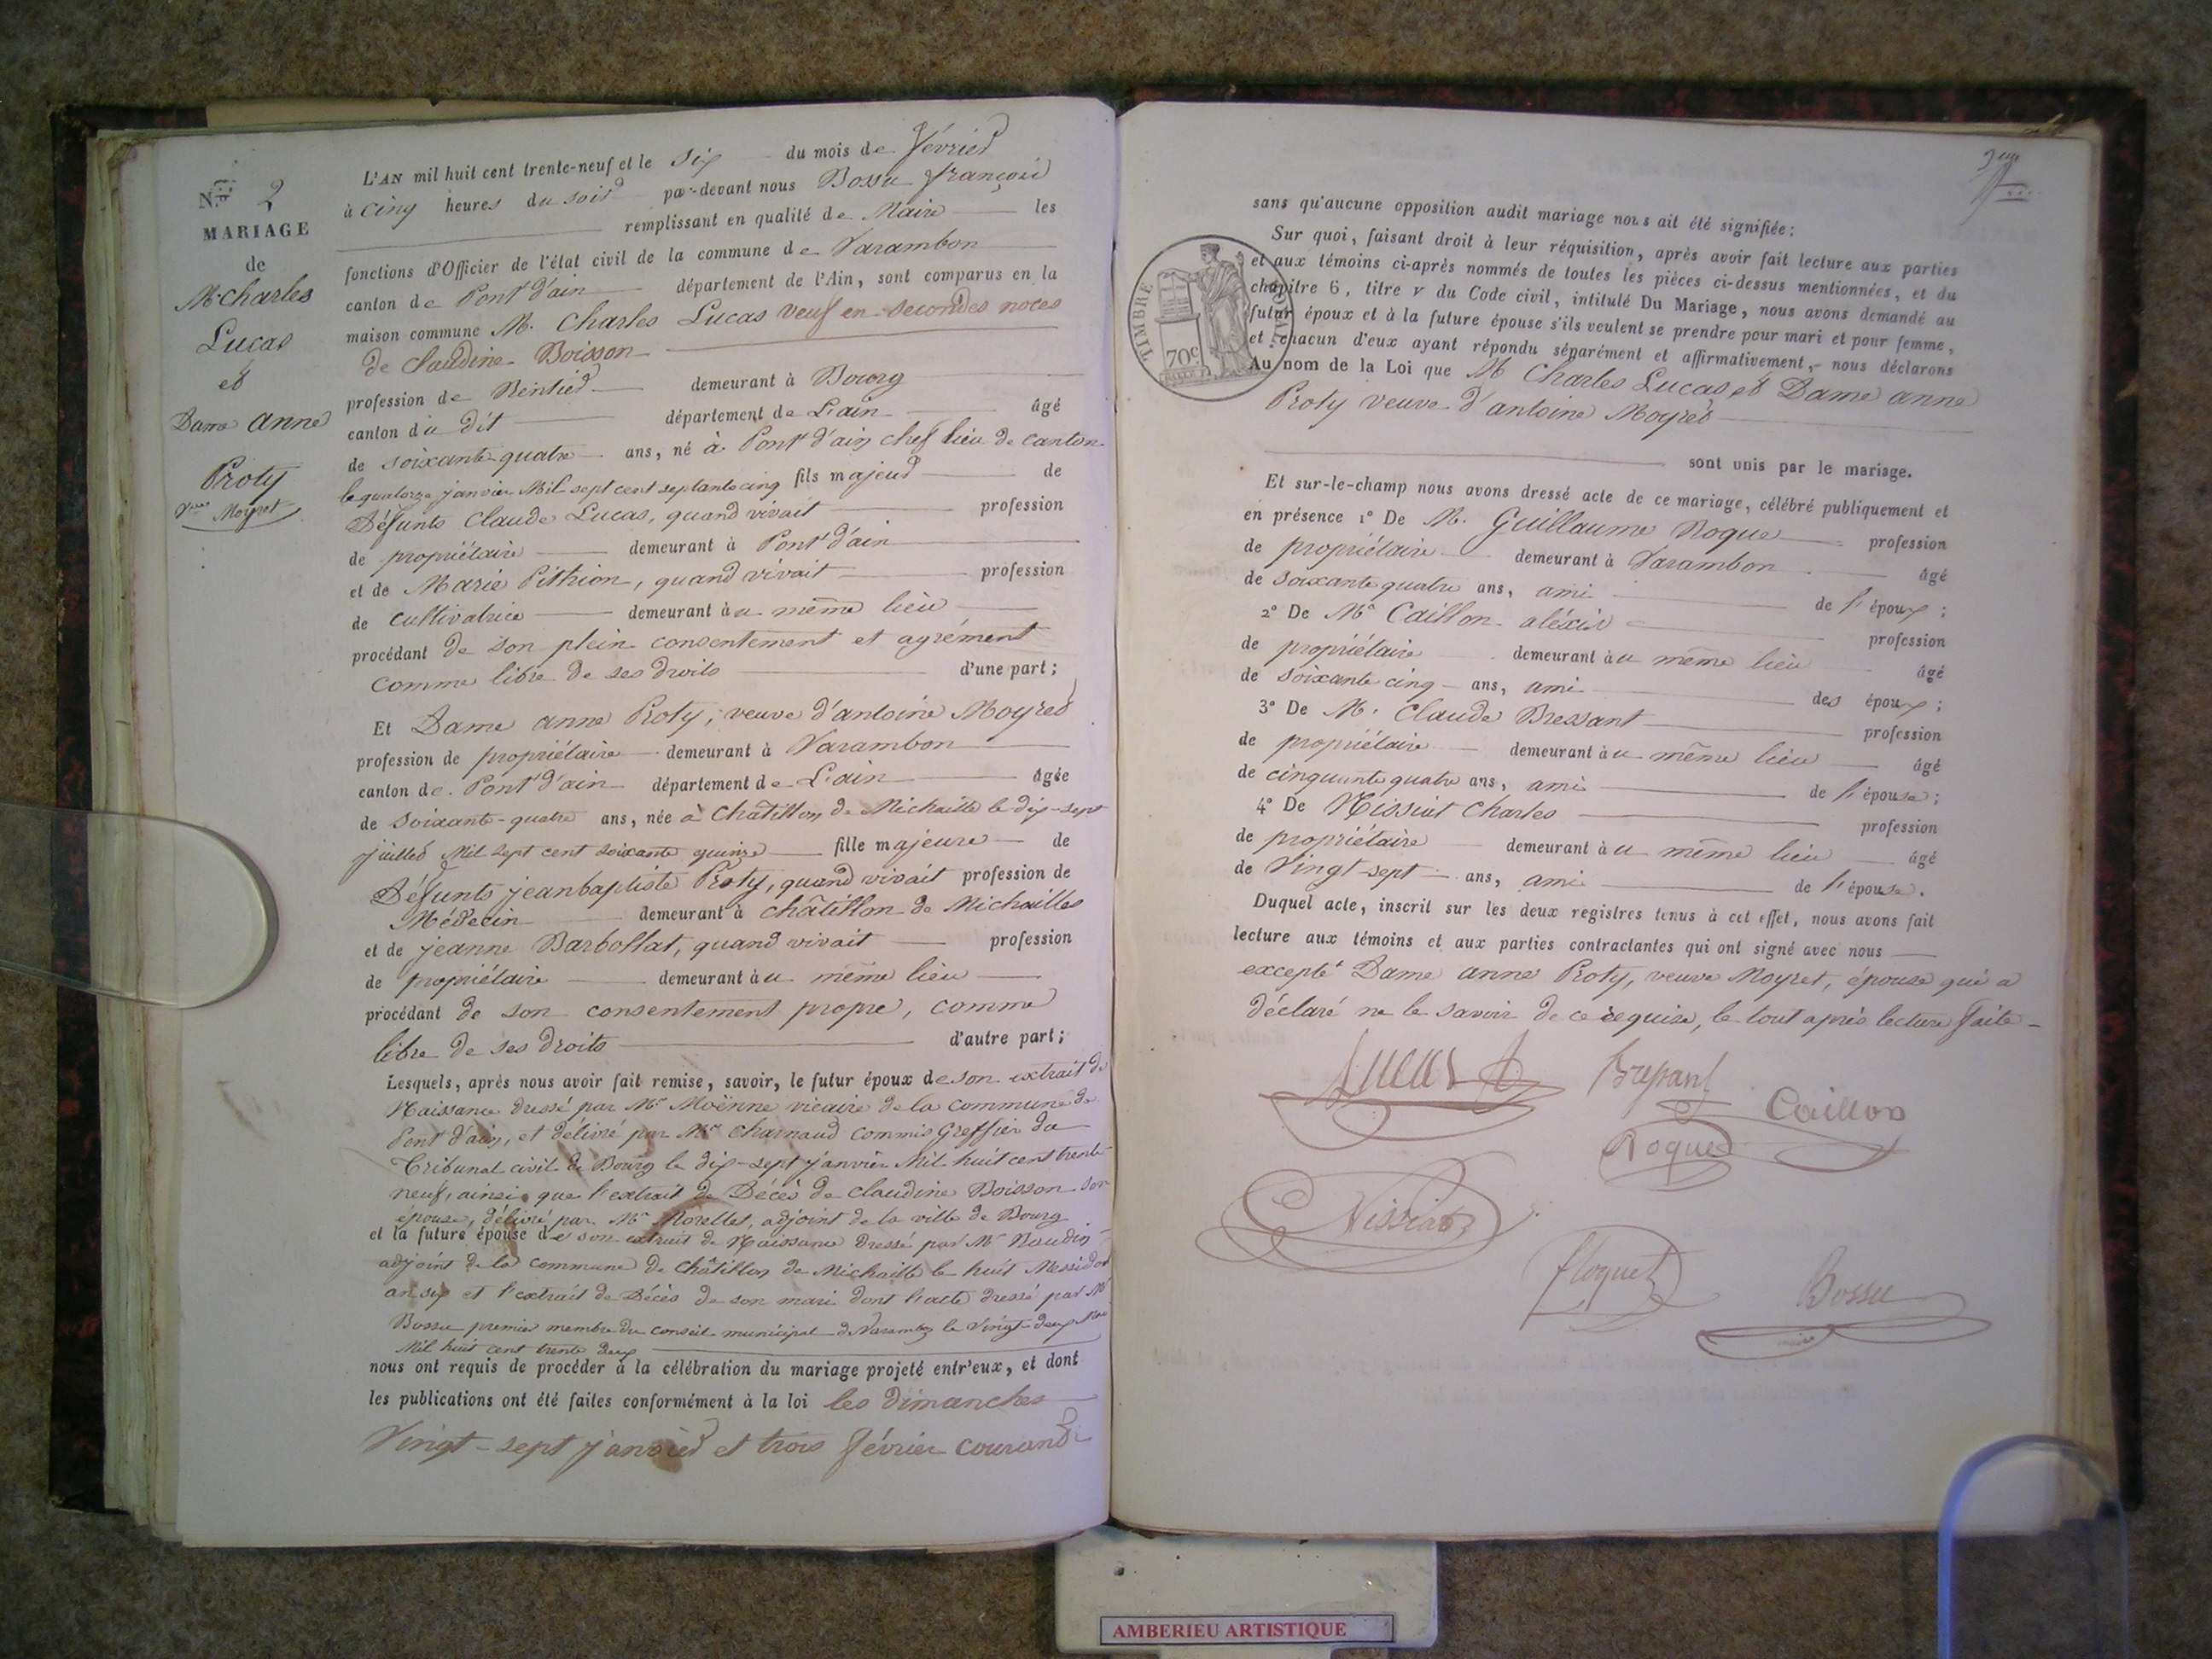 N.º 2
MARIAGE
de
Mr Charles
Lucas
et
Dame anne
Proty
Vve Moyret
L'AN mil huit cent trente-neuf et le Six du mois de février
à cinq heures du soir par-devant nous Bossu françois
remplissant en qualité de Maire les
fonctions d'Officier de l'état civil de la commune de Varambon
canton de Pont d'ain département de l'Ain, sont comparus en la
maison commune M. Charles Lucas veuf en secondes noces
de claudine Boisson
profession de Rentier demeurant à Bourg
canton du dit département de L'ain âgé
de soixante quatre ans, né à Pont d'ain chef lieu de canton
le quatorze janvier Mil sept cent septante cinq fils majeur de
Défunts Claude Lucas, quand vivait profession
de propriétaire demeurant à Pont d'ain
et de Marie Pithion, quand vivait profession
de cultivatrice demeurant au même lieu
procédant de son plein consentement et agrément
comme libre de ses droits d'une part;
Et Dame anne Proty, veuve d'antoine Moyret
profession de propriétaire demeurant à Varambon
canton de Pont d'ain département de L'ain âgée
de soixante-quatre ans, née à Châtillon de Michaille le dix-sept
juillet Mil sept cent soixante quinze fille majeure de
Défunts jeanbaptiste Proty, quand vivait profession de
Médecin demeurant à châtillon de Michailles
et de jeanne Barbollat, quand vivait profession
de propriétaire demeurant au même lieu
procédant de son consentement propre, comme
libre de ses droits d'autre part;
Lesquels, après nous avoir fait remise, savoir, le futur époux de son extrait de
Naissance dressé par Mr Moënne vicaire de la commune de
Pont d'ain, et délivré par Mr charnaud commis Greffier du
Tribunal civil de Bourg le dix-sept janvier Mil huit cent trente-
neuf, ainsi que l'extrait de Décès de claudine Boisson son
épouse, délivré par Mr Morellet, adjoint de la ville de Bourg
et la future épouse de son extrait de Naissance dressé par Mr Boudin
adjoint de la commune de Châtillon de Michaille le huit Messidor
an six et l'extrait de Décès de son mari dont l'acte dressé par Mr
Bossu premier membre du conseil municipal de Varambon le Vingt-deux
Mil huit cent trente deux
nous ont requis de procéder à la célébration du mariage projeté entr'eux, et dont
les publications ont été faites conformément à la loi les dimanches
Vingt-sept janvier et trois février courant
sans qu'aucune opposition audit mariage nous ait été signifiée;
Sur quoi, faisant droit à leur réquisition, après avoir fait lecture aux parties
et aux témoins ci-après nommés de toutes les pièces ci-dessus mentionnées, et du
chapitre 6, titre V du Code civil, intitulé Du Mariage, nous avons demandé au
futur époux et à la future épouse s'ils veulent se prendre pour mari et pour femme,
et chacun d'eux ayant répondu séparément et affirmativement, nous déclarons
Au nom de la Loi que M Charles Lucas et Dame anne
Proty veuve d'antoine Moyret
TIMBRE ROYAL
70c
sont unis par le mariage.
Et sur-le-champ nous avons dressé acte de ce mariage, célébré publiquement et
en présence 1º De M. Guillaume Roque profession
de propriétaire demeurant à Varambon âgé
de soixante quatre ans, ami de l'époux;
2º De Mr Caillon aléxis profession
de propriétaire demeurant au même lieu âgé
de soixante cinq ans, ami des époux;
3º De M. Claude Bressant profession
de propriétaire demeurant au même lieu âgé
de cinquante quatre ans, ami de l'épouse;
4º De Nissiat Charles profession
de propriétaire demeurant au même lieu âgé
de Vingt-sept ans, ami de l'épouse.
Duquel acte, inscrit sur les deux registres tenus à cet effet, nous avons fait
lecture aux témoins et aux parties contractantes qui ont signé avec nous
excepté Dame anne Proty, veuve Moyret, épouse qui a
déclaré ne le savoir de ce requise, le tout après lecture faite
Lucas
Bressant
Caillon
Roque
C Nissiat
floquet
Bossu
maire
AMBERIEU ARTISTIQUE